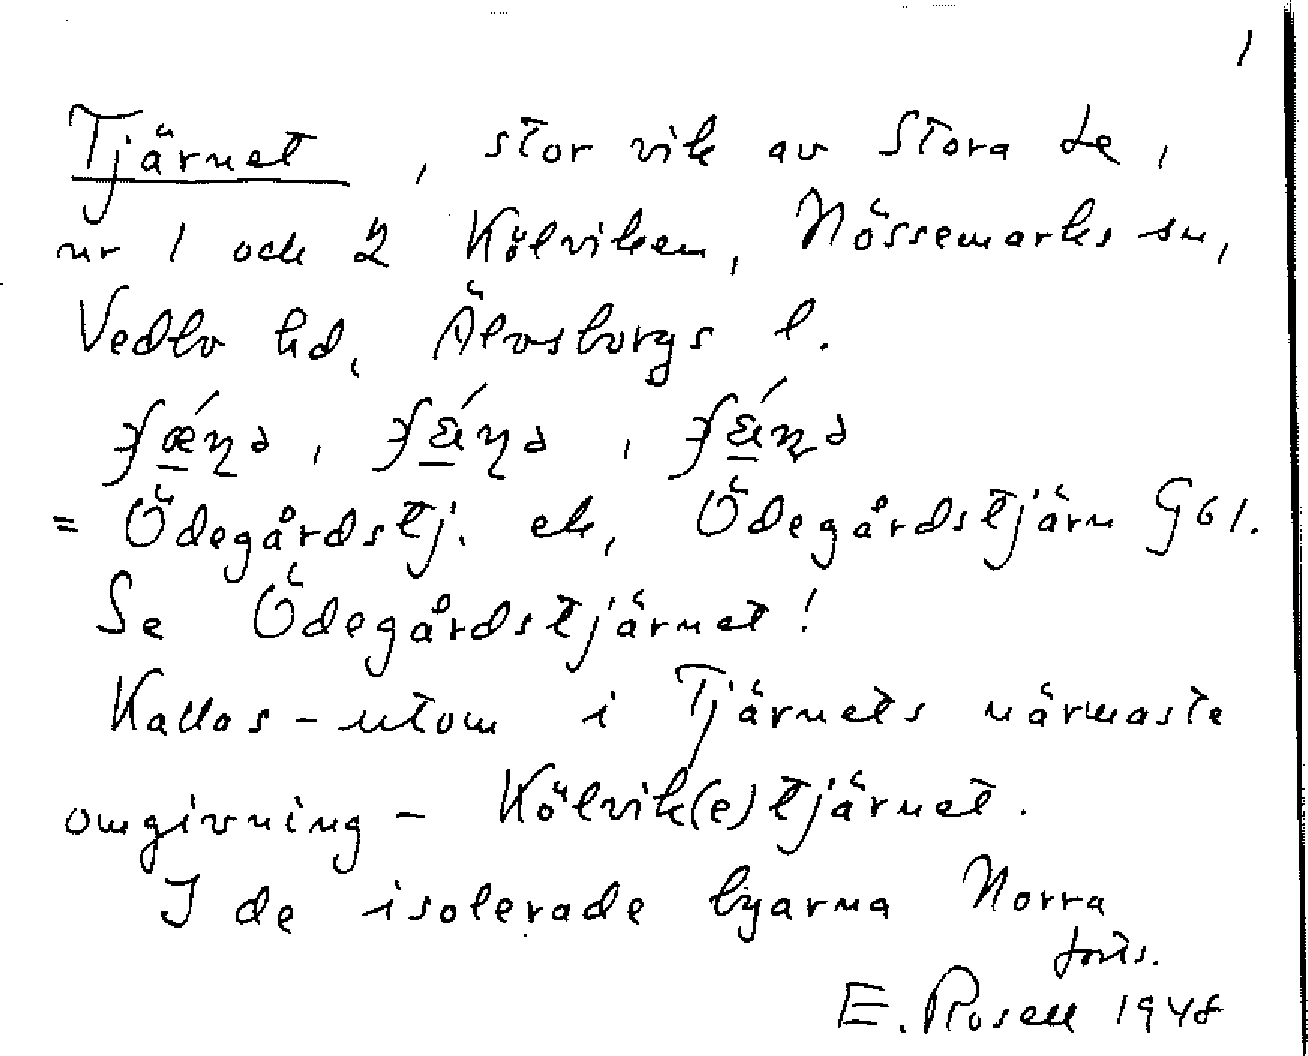 1
Tjärnet, stor vik av Stora Le,
nr 1 och 2 Kölviken, Nössemarks sn,
Vedbo hd, Älvsborgs l.
= Ödegårdstj. ek, Ödegårdstjärn G61.
Se Ödegårdstjärnet!
Kallas - utom i Tjärnets närmaste
omgivning - Kölvik(e)tjärnet.
I de isolerade byarna Norra
forts.
E. Rosell 1948